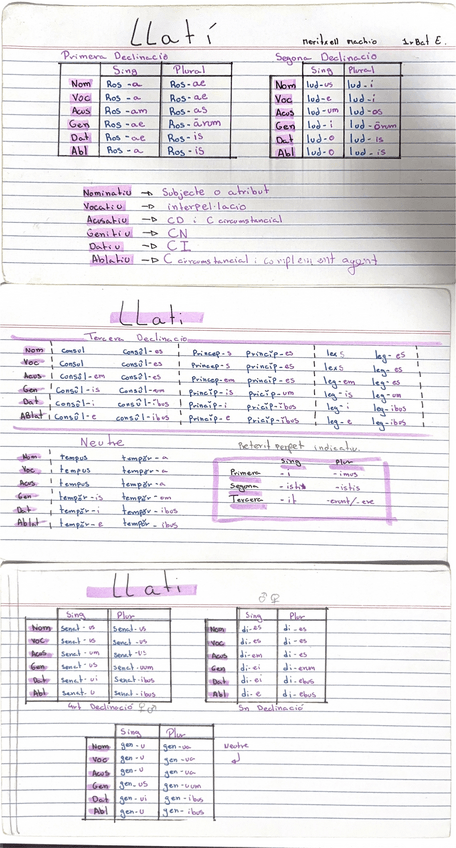 LLatí
meritxell machio 1r Bat E.
Primera Declinació Segona Declinació
Sing Plural Sing Plural
Nom Ros-a Ros-ae Nom lud-us lud-i
Voc Ros-a Ros-ae Voc lud-e lud-i
Acus Ros-am Ros-as Acus lud-um lud-os
Gen Ros-ae Ros-ārum Gen lud-i lud-ōrum
Dat Ros-ae Ros-is Dat lud-o lud-is
Abl Ros-a Ros-is Abl lud-o lud-is
Nominatiu → Subjecte o atribut
Vocatiu → interpel·lació
Acusatiu → CD i C circumstancial
Genitiu → CN
Datiu → CI
Ablatiu → C circumstancial i complement agent
LLatí
Tercera Declinació
Nom Consul Consŭl-es Princep-s princĭp-es lexs leg-es
Voc Consul Consŭl-es Princep-s princĭp-es lexs leg-es
Acus Consŭl-em Consŭl-es Princep-em princĭp-es leg-em leg-es
Gen Consŭl-is Consŭl-um Princĭp-is pricĭp-um leg-is leg-um
Dat Consŭl-i Consŭl-ibus Princĭp-i pricĭp-ibus leg-i leg-ibus
Ablat Consŭl-e Consŭl-ibus Princĭp-e pricĭp-ibus leg-e leg-ibus
Neutre
Nom tempus tempŏr-a
Voc tempus tempŏr-a
Acus tempus tempŏr-a
Gen tempŏr-is tempŏr-um
Dat tempŏr-i tempŏr-ibus
Ablat tempŏr-e tempŏr-ibus
Preterit perfet indicatiu
Sing Plur
Primera -i -imus
Segona -isti -istis
Tercera -it -erunt/-ere
LLatí
♂ ♀
Sing Plur Sing Plur
Nom Senat-us Senat-us Nom di-es di-es
Voc Senat-us Senat-us Voc di-es di-es
Acus Senat-um Senat-us Acus di-em di-es
Gen Senat-us Senat-uum Gen di-ei di-erum
Dat Senat-ui Senat-ibus Dat di-ei di-ebus
Abl Senat-u Senat-ibus Abl di-e di-ebus
4rt Declinació ♀♂ 5n Declinació
Sing Plur
Nom gen-u gen-ua
Voc gen-u gen-ua
Acus gen-u gen-ua
Gen gen-us gen-uum
Dat gen-ui gen-ibus
Abl gen-u gen-ibus
Neutre